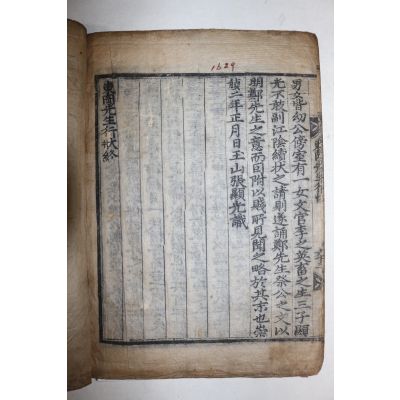 1629
男女皆幼公傍室有一女文官李之英畜之生三子顯
光不敢副江陰續狀之請則遂誦鄭先生祭公之文以
明鄭先生之意而因附以賤所見聞之略於其末也崇
禎二年正月日玉山張顯光識
東岡先生行狀終